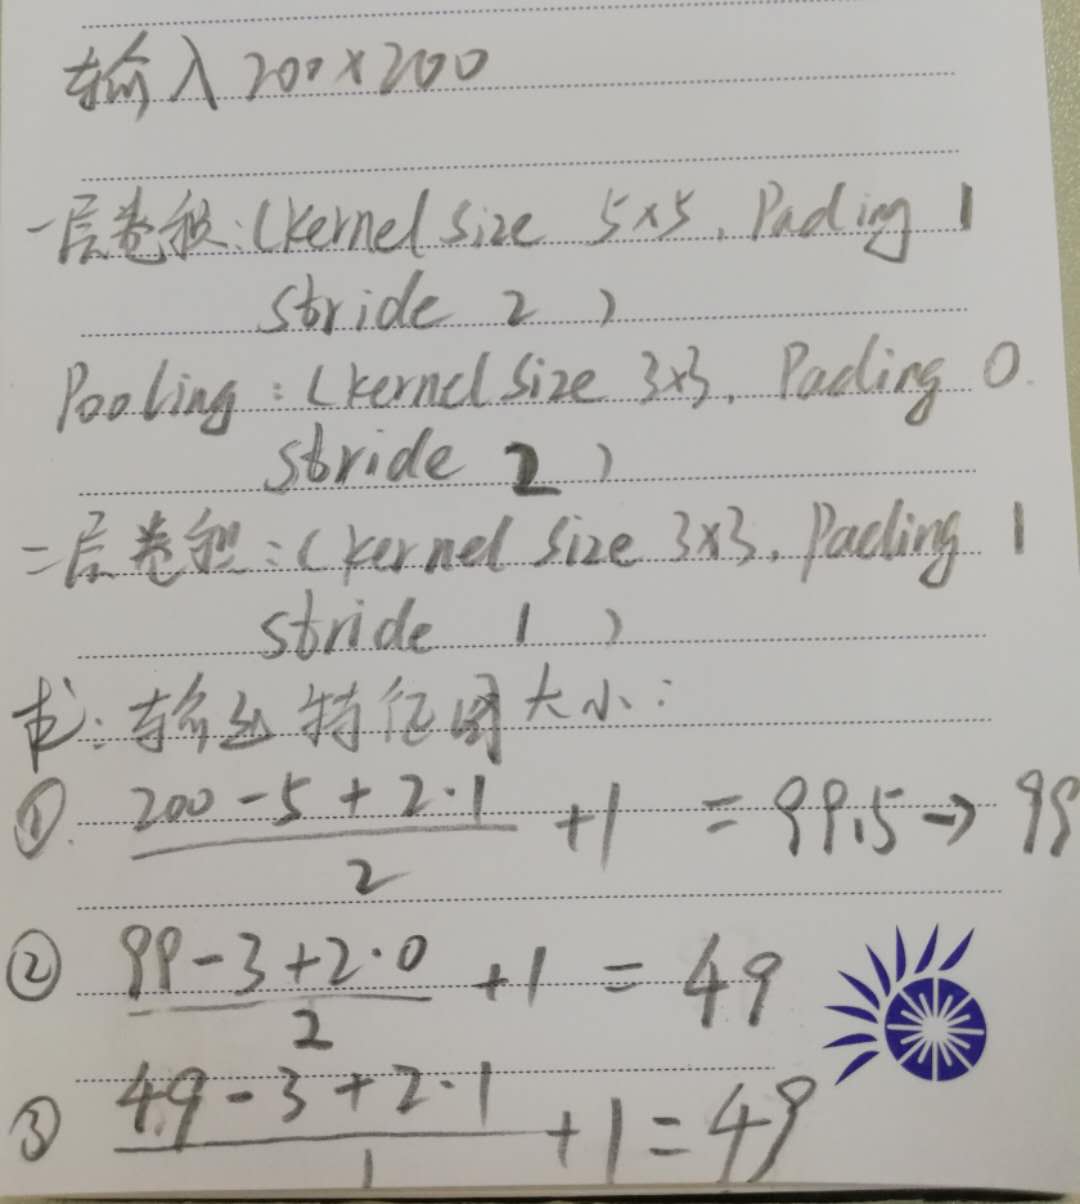 输入 200×200
一层卷积:(kernel size 5×5, Pading 1
stride 2 )
Pooling : (kernel size 3×3, Pading 0.
stride 2 )
二层卷积 : ( kernel size 3×3, Pading 1
stride 1 )
求: 输出特征图大小:
① (200-5+2·1)/2 +1 = 99.5 → 99
② (99-3+2·0)/2 +1 = 49
③ (49-3+2·1)/1 +1 = 49